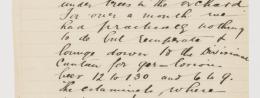 under trees in the orchard.
For over a month we
had practically nothing
to do but recuperate &
lounge down to the Divisional
Canteen for
beer 12 to 130 and 6 to 9.
The estaminets, where